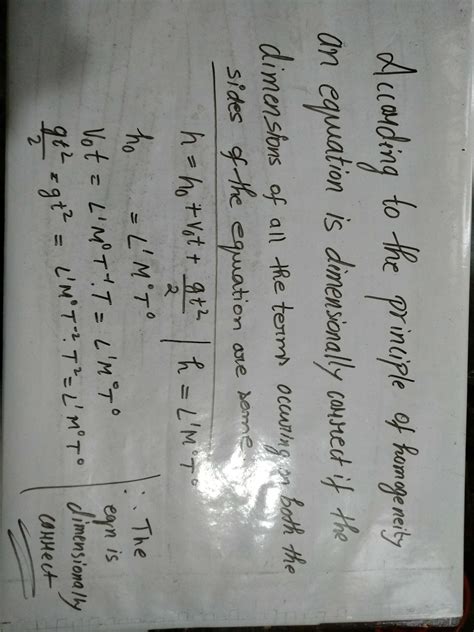 According to the principle of homogeneity
an equation is dimensionally correct if the
dimensions of all the terms occuring in both the
sides of the equation are same.
h = h₀ + v₀t + gt²/2 | h = L¹M⁰T⁰
h₀ = L¹M⁰T⁰
V₀t = L¹M⁰T⁻¹.T = L¹M⁰T⁰
gt²/2 = gt² = L¹M⁰T⁻².T² = L¹M⁰T⁰
∴ The
eqn is
dimensionally
correct